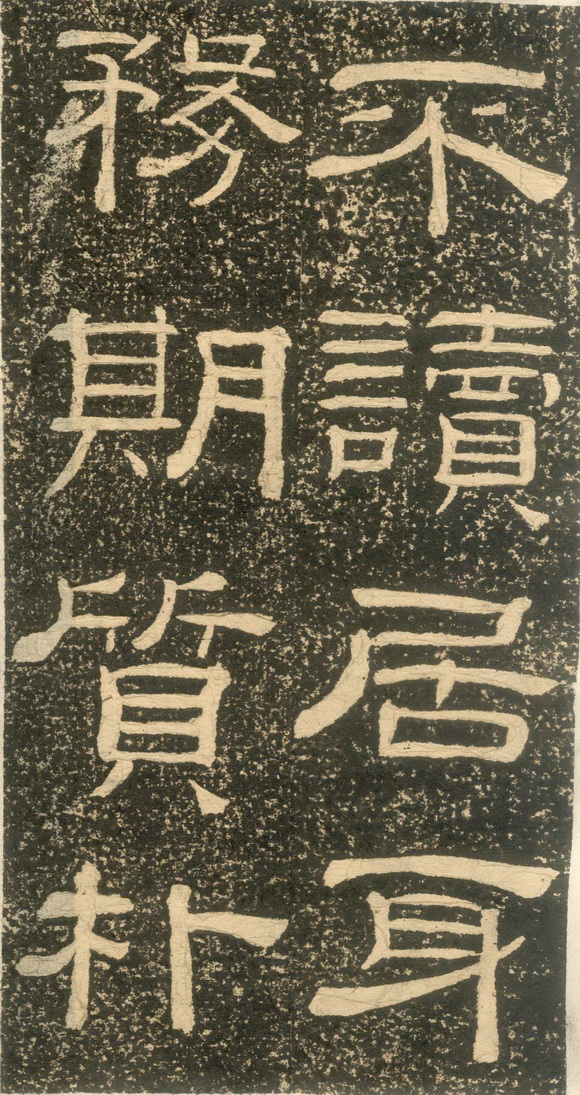 不讀居身
務期質朴